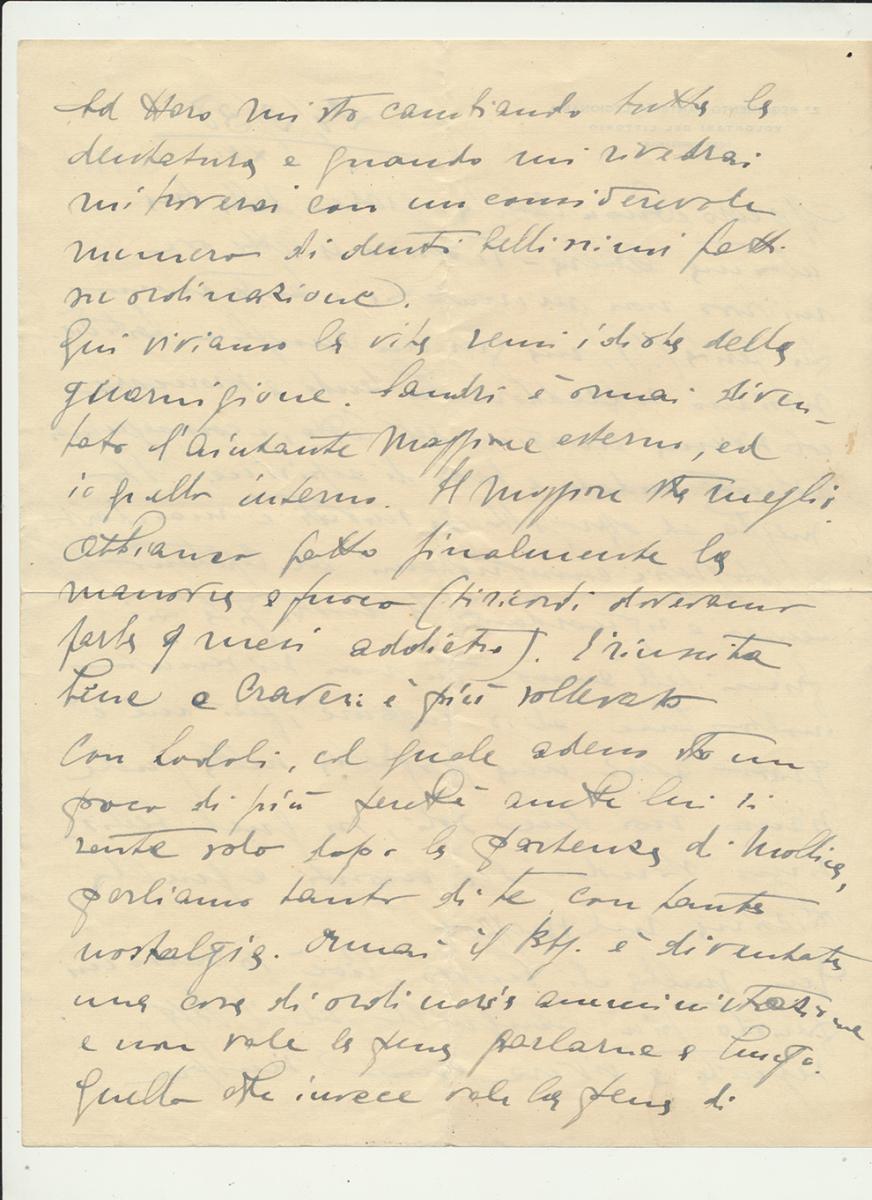 Ed ora mi sto cambiando tutta la
dentatura e quando mi rivedrai
mi troverai con un considerevole
numero di denti bellissimi fatti
su ordinazione.
Qui viviamo la vita semi idiota della
guarnigione. Landri è ormai diven-
tato l'Aiutante Maggiore esterno, ed
io quello interno. Il Maggiore sta meglio.
Abbiamo fatto finalmente la
manovra a fuoco (ti ricordi dovevamo
farla 9 mesi addietro). È riuscita
bene e Craveri è più sollevato
Con Lodoli, col quale adesso sto un
poco di più perchè anche lui si
sente solo dopo la partenza di Mollica,
parliamo tanto di te con tanta
nostalgia. Ormai il Btg. è diventato
una cosa di ordinaria amministrazione
e non vale la pena parlarne a lungo.
Quello che invece vale la pena di